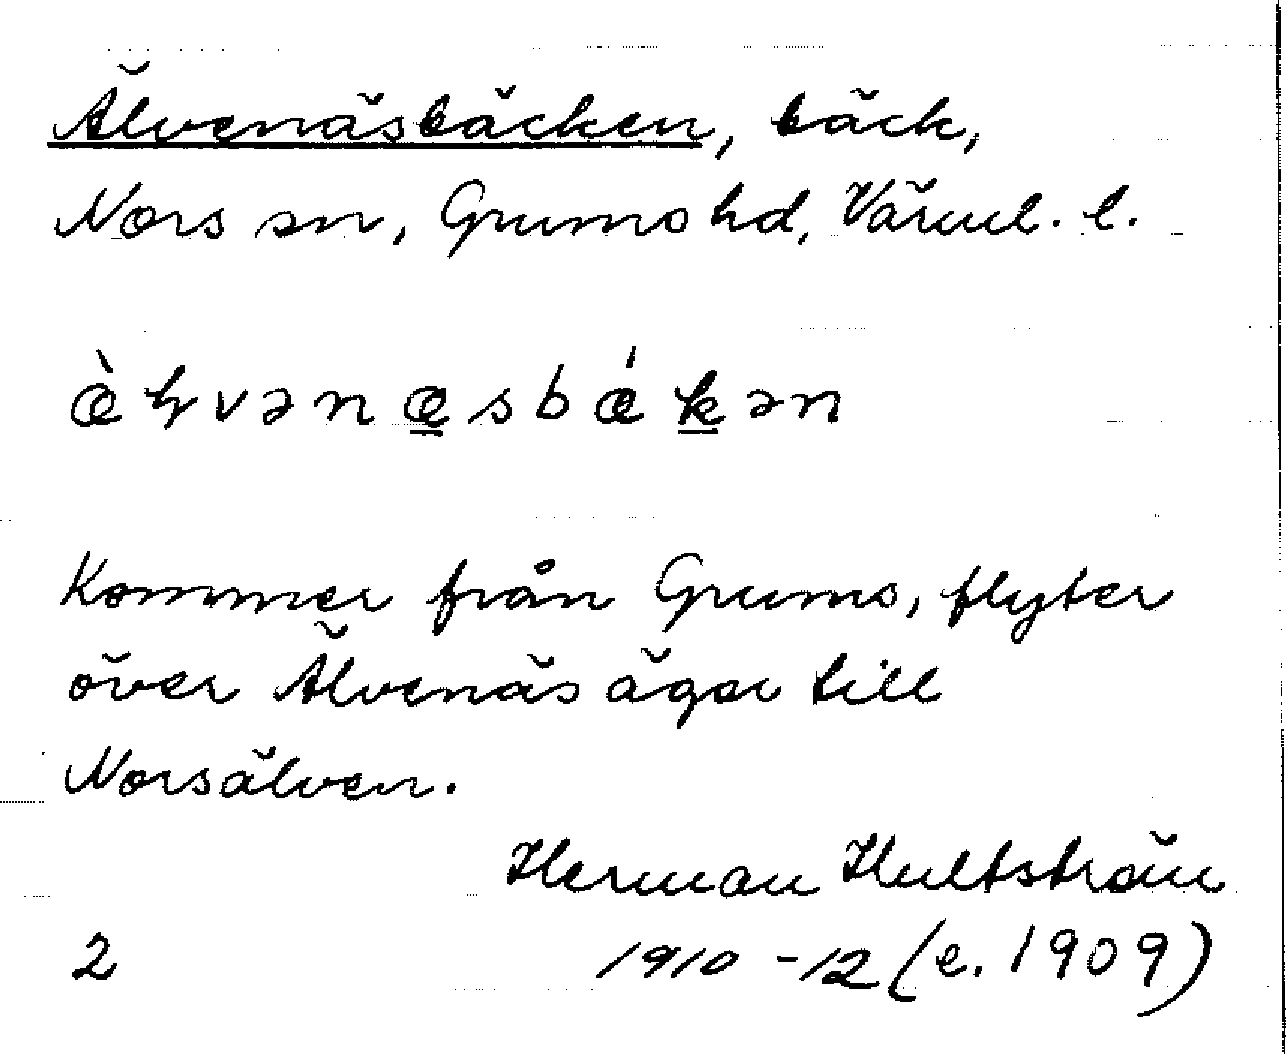 Älvenäsbäcken, bäck,
Nors sn, Grums hd, Värml. l.
æ̀ɽvənæsbǽkən
Kommer från Grums, flyter
över Älvenäs ägor till
Norsälven.
Herman Hultström
2 1910-12 (e. 1909)